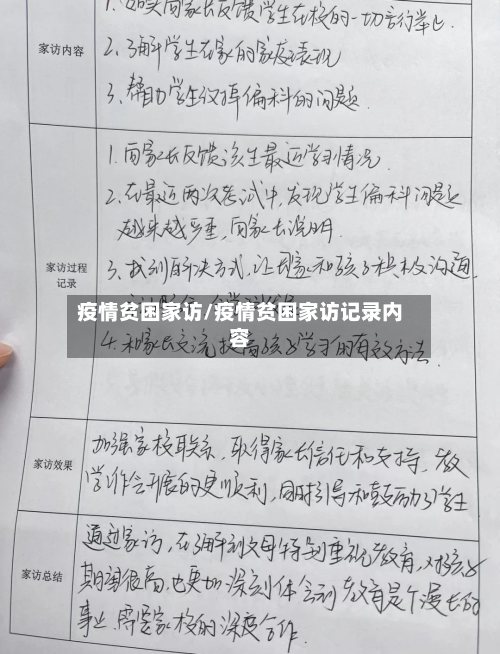 家访内容
1.如实向家长反馈学生在校的一切言行举止.
2.了解学生在家的家庭表现
3.帮助学生改掉偏科的问题.
家访过程
记录
1.向家长反馈该生最近学习情况.
2.在最近两次考试中,发现学生偏科问题
越来越严重,向家长说明.
3.找到解决方式,让家长和孩子积极沟通,
疫情贫困家访/疫情贫困家访记录内
容
4.和家长交流提高孩子学习的有效方法.
家访效果
加强家校联系,取得家长信任和支持,教
学工作会开展的更顺利,同时引导和鼓励了学生
家访总结
通过家访,在了解到父母特别重视教育,对孩子
期望很高,也更加深刻体会到教育是个漫长的
事业.需要家校的深度合作.